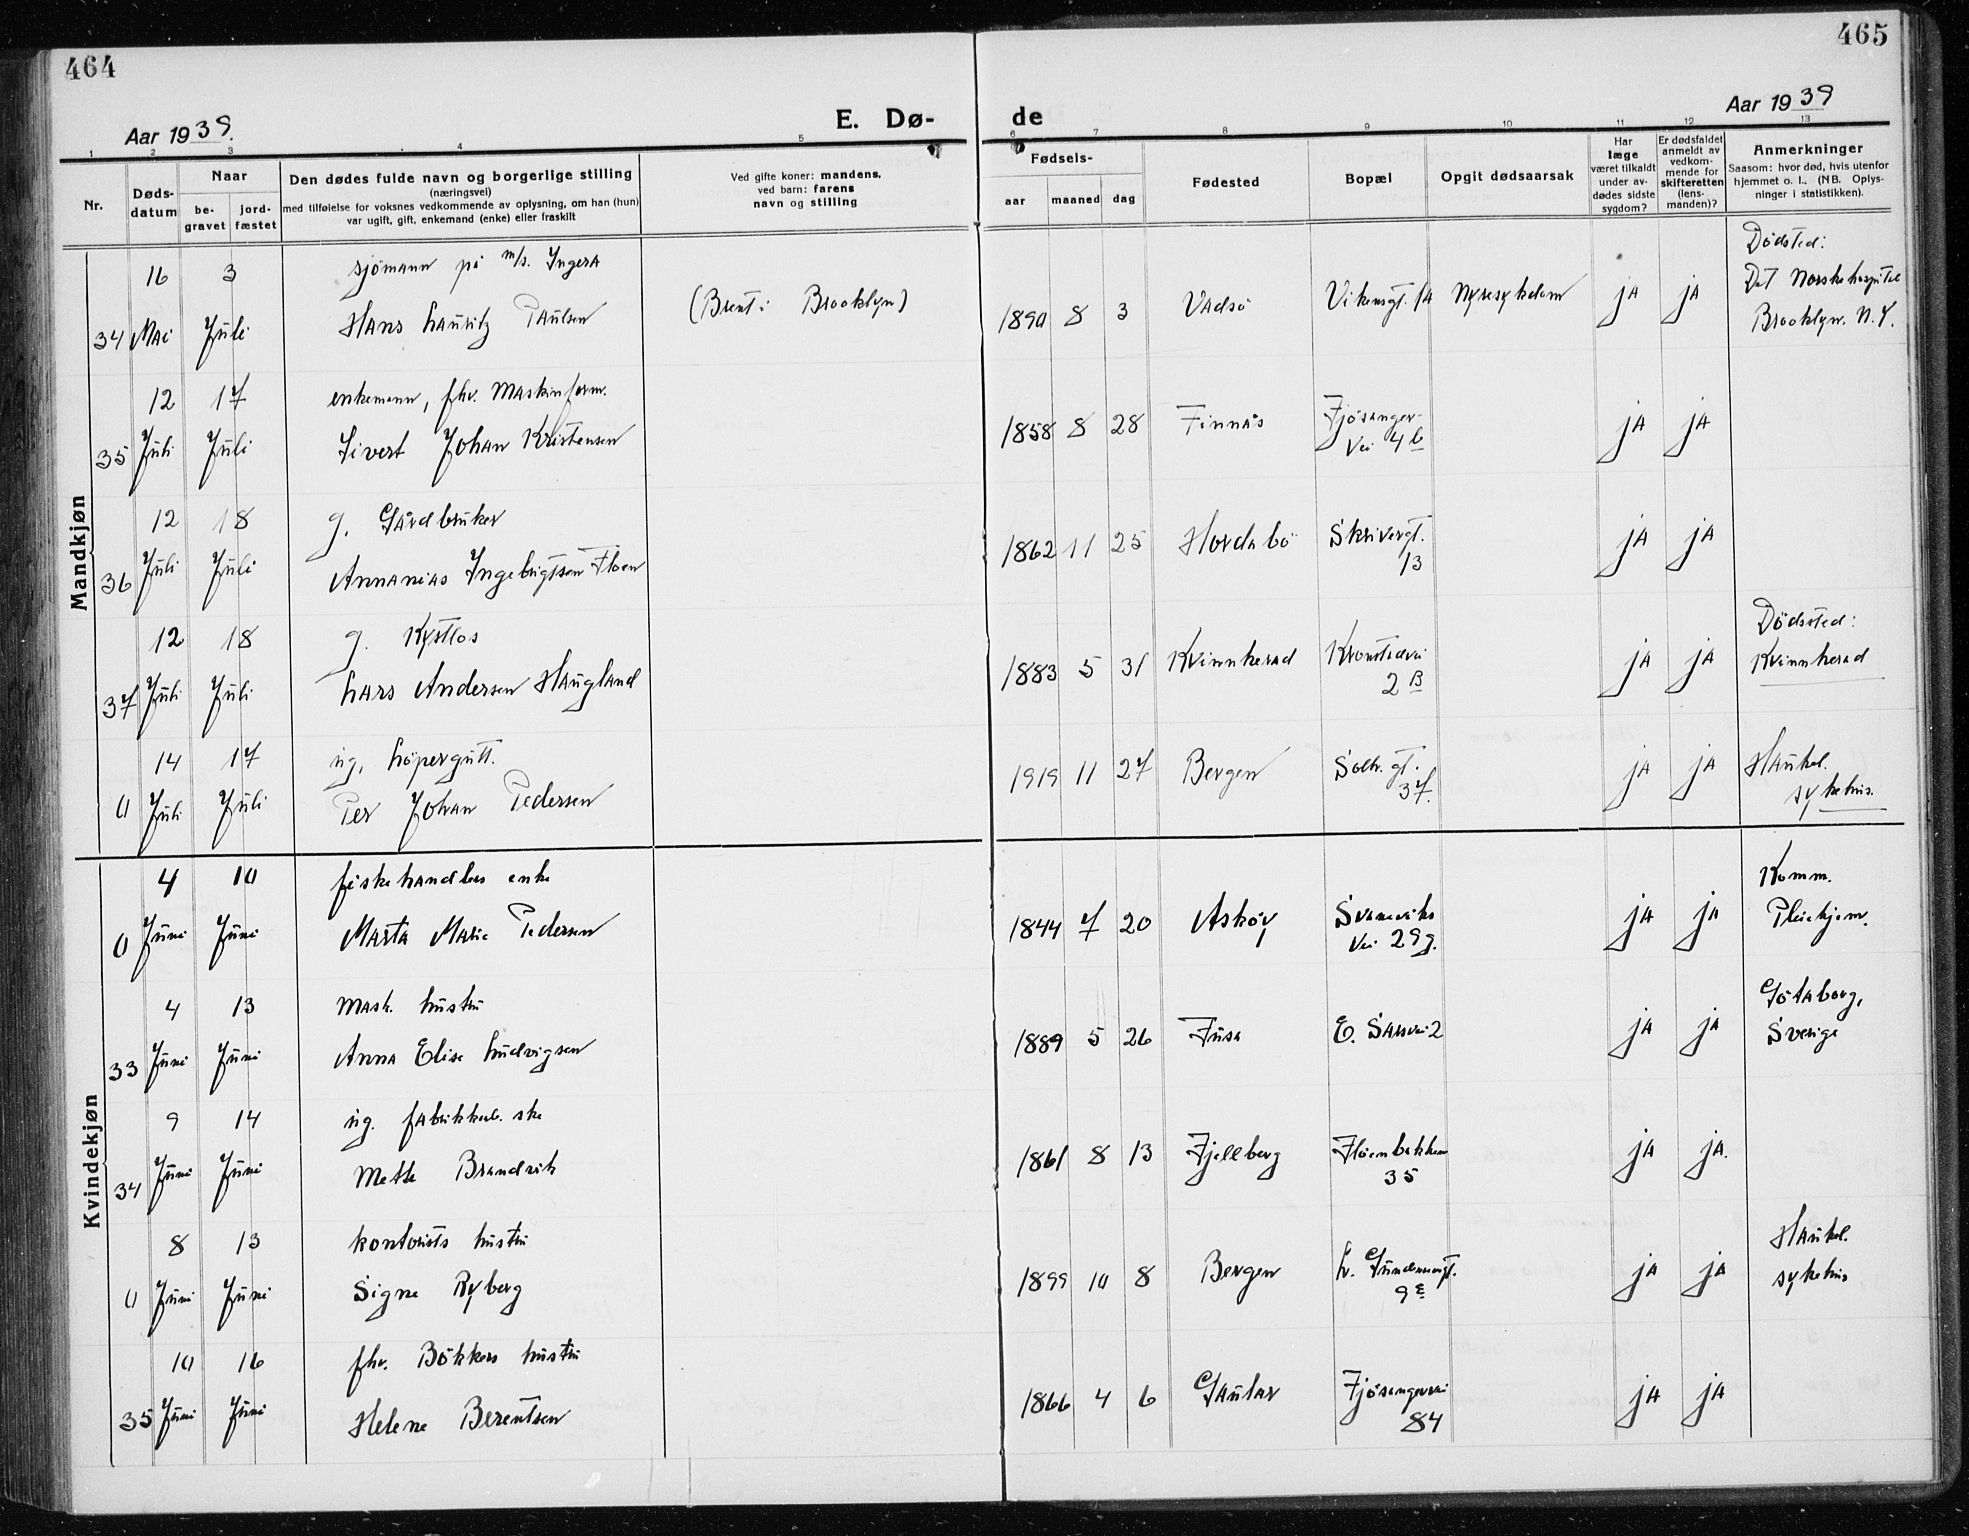 464
465
Aar 1939.
E. Dø-
de
Aar 1939
1 2 3 4 5 6 7 8 9 10 11 12 13
Nr.
Døds-
datum
Naar
be-
gravet
jord-
fæstet
Den dødes fulde navn og borgerlige stilling
(næringsvei)
med tilføielse for voksnes vedkommende av oplysning, om han (hun)
var ugift, gift, enkemand (enke) eller fraskilt
Ved gifte koner: mandens,
ved barn: farens
navn og stilling
Fødsels-
aar
maaned
dag
Fødested
Bopæl
Opgit dødsaarsak
Har
læge
været tilkaldt
under av-
dødes sidste
sygdom?
Er dødsfaldet
anmeldt av
vedkom-
mende for
skifteretten
(lens-
manden)?
Anmerkninger
Saasom: hvor død, hvis utenfor
hjemmet o. l., (NB. Oplys-
ninger i statistikken).
Mandkjøn
34 16 Mai 3 Juli
sjömann på m/s. Ingera
Hans Lauritz Paulsen
(Brent i Brooklyn)
1890 8 3 Vadsö Vikensgt. 1A Nyresykdom ja ja
Dödsted:
Det Norske hospital
Brooklyn. N.Y.
35 12 Juli 17 Juli
enkemann, fhv. Maskinform.
Sivert Johan Kristensen
1858 8 28 Finnås Fjösanger-
Vei 4b ja ja
36 12 Juli 18 Juli
g. Gårdbruker
Annanias Ingebrigtsen Floen
1862 11 25 Hordabö Skrivergt.
13 ja ja
37 12 Juli 18 Juli
g. Kystlos
Lars Andersen Haugland
1883 5 31 Kvinnherad Kronstadvei
2B ja ja
Dödssted:
Kvinnherad
0 14 Juli 17 Juli
ug. Löpergutt.
Per Johan Pedersen
1919 11 27 Bergen Solh. gt.
37. ja ja
Haukel.
sykehus.
Kvindekjøn
0 4 Juni 10 Juni
fiskehandlers enke
Marta Marie Pedersen
1844 7 20 Asköy Svaneviks
Vei 29g. ja ja
Komm.
Pleiehjem.
33 4 Juni 13 Juni
Mask. hustru
Anna Elise Ludvigsen
1889 5 26 Fusa E. Sarsvei 2 ja ja
Götaborg,
Sverige
34 9 Juni 14 Juni
ug. fabrikkarb. ske
Mette Brandvik
1861 8 13 Fjellberg Flöenbakken
35 ja ja.
0 8 Juni 13 Juni
kontorists hustru
Signe Ryberg
1899 10 8 Bergen L. Gundersensgt.
9E ja ja
Haukel.
sykehus
35 10 Juni 16 Juni
fhv. Bökkers hustru
Helene Berentsen
1866 4 6 Gaular Fjösangervei
84 ja ja